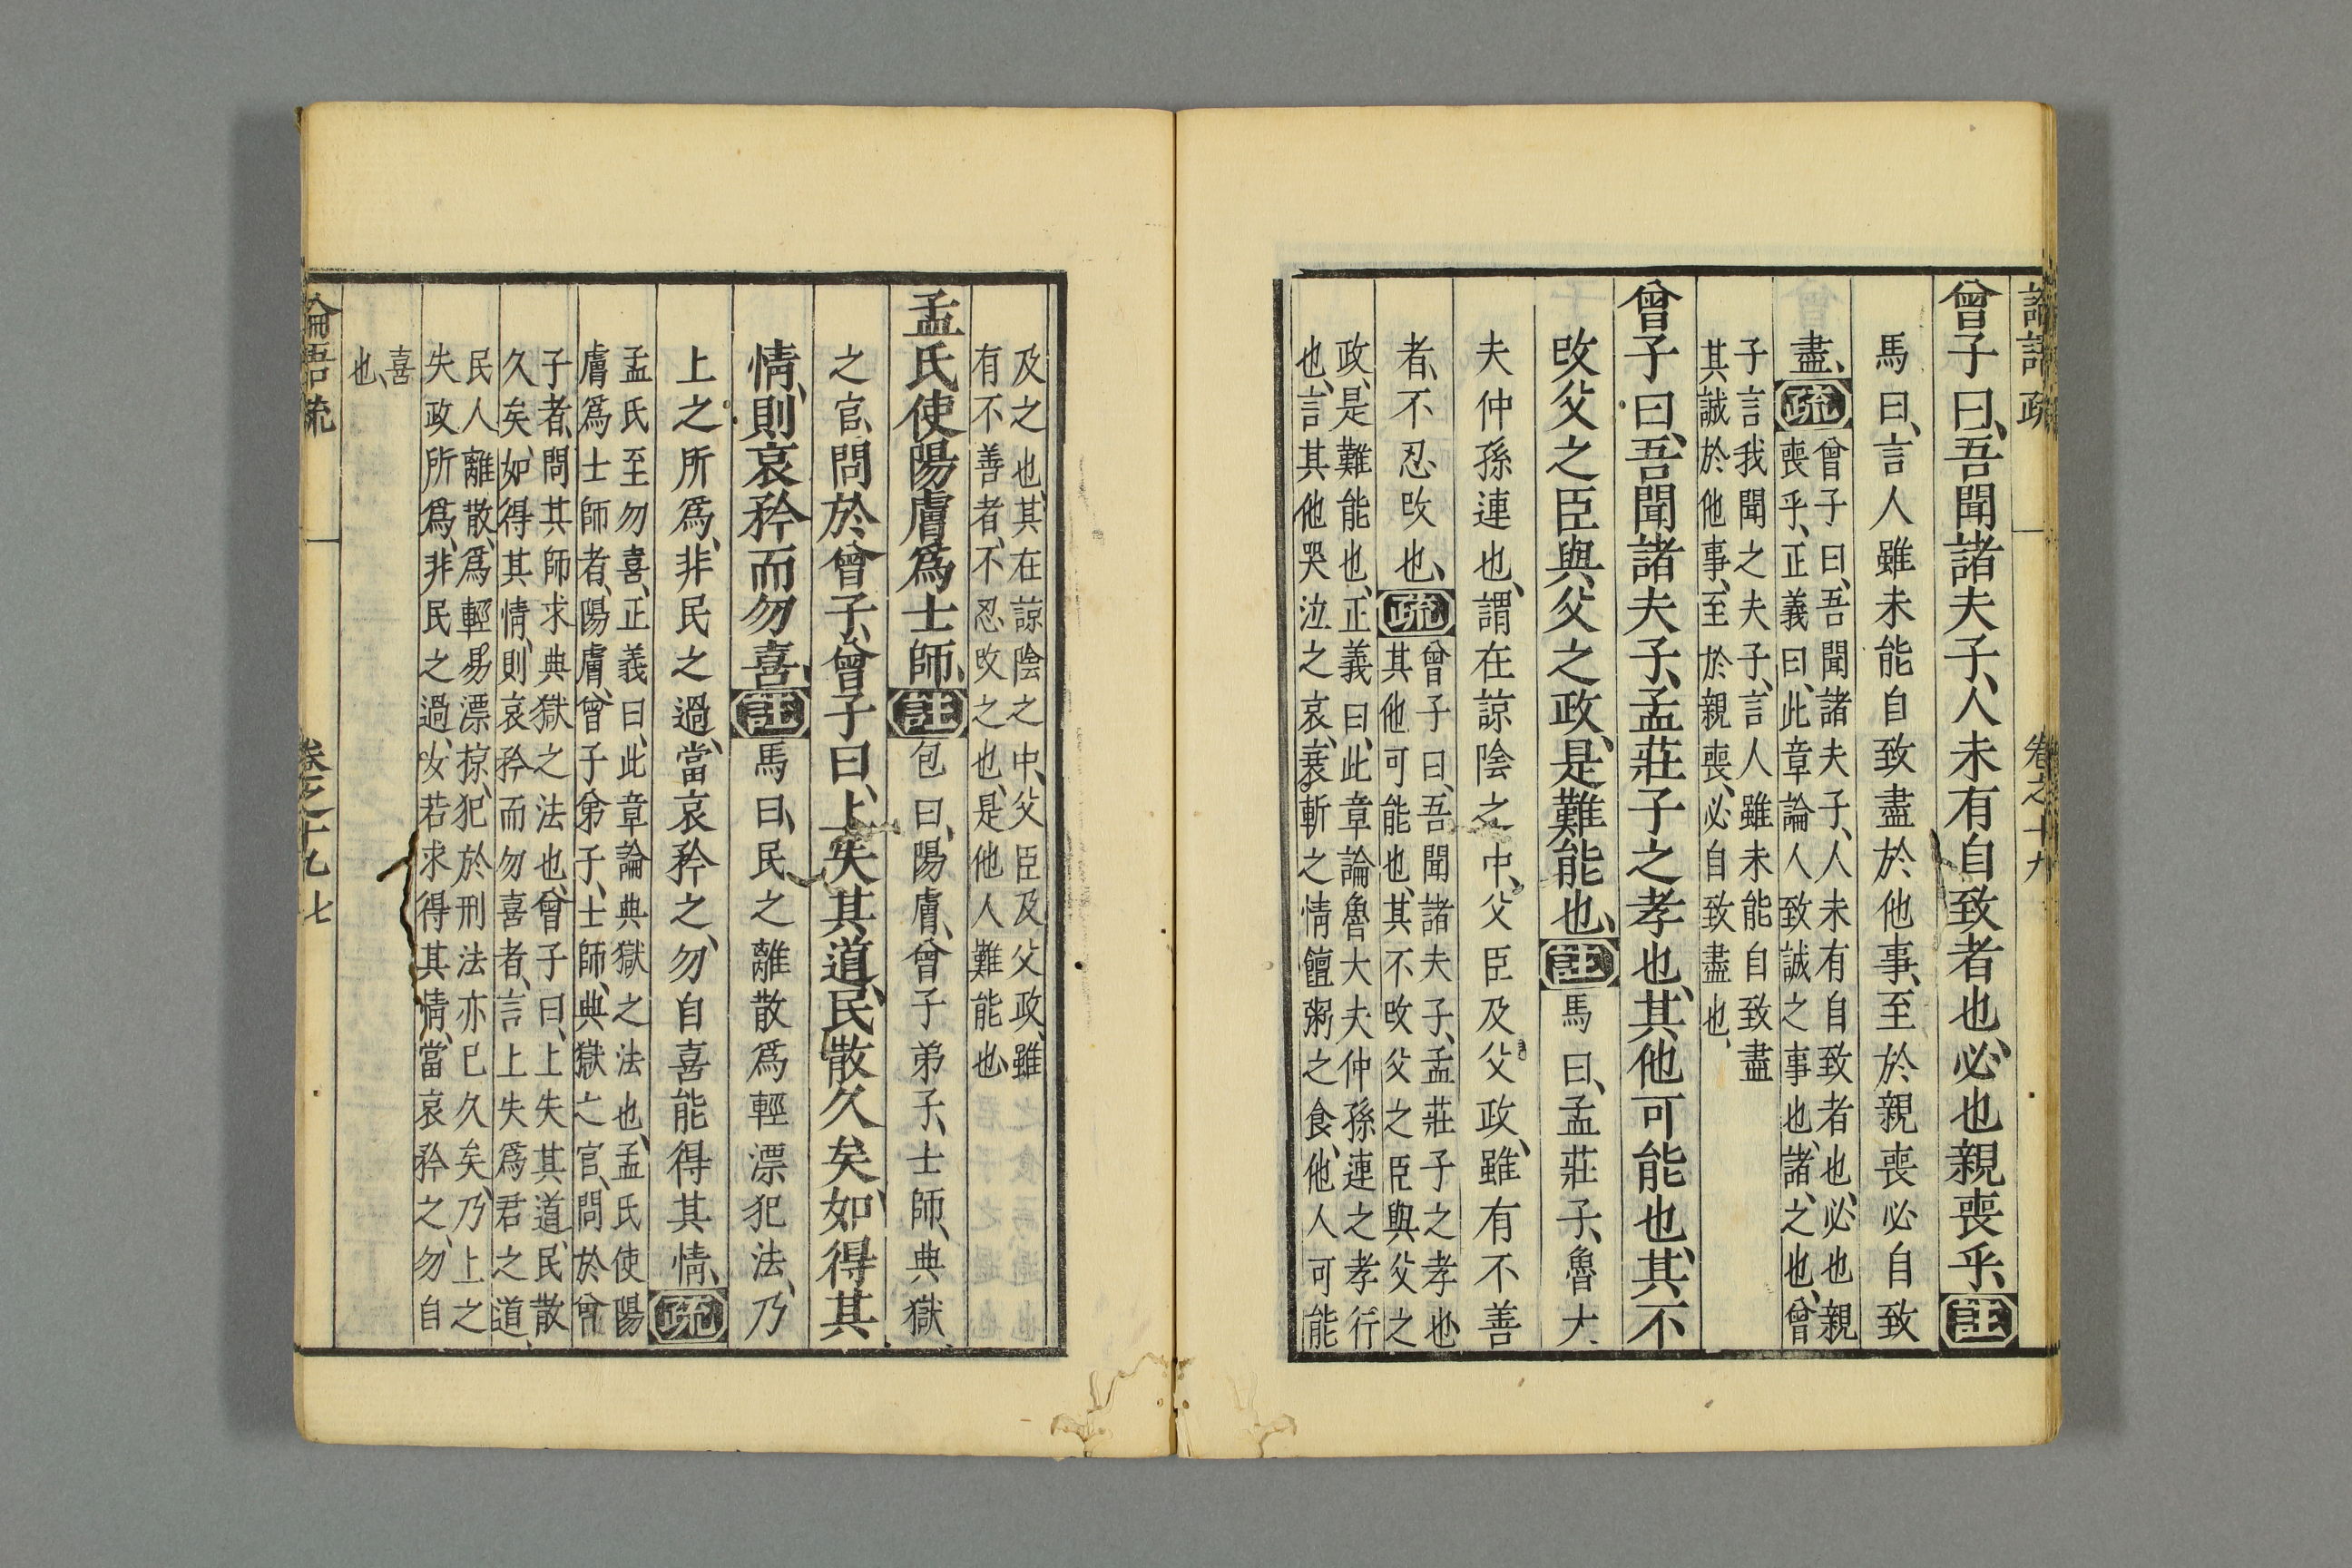 論語疏 卷之十九
曾子曰、吾聞諸夫子、人未有自致者也、必也親喪乎、註
馬曰、言人雖未能自致盡於他事、至於親喪必自致
盡、疏
曾子曰、吾聞諸夫子、人未有自致者也、必也親
喪乎、正義曰、此章論人致誠之事也、諸、之也、曾
子言我聞之夫子、言人雖未能自致盡
其誠於他事、至於親喪、必自致盡也、
曾子曰、吾聞諸夫子、孟莊子之孝也、其他可能也、其不
攺父之臣與、父之政、是難能也、註馬曰、孟莊子、魯大
夫仲孫連也、謂在諒陰之中、父臣及父政、雖有不善
者、不忍攺也、疏
曾子曰、吾聞諸夫子、孟莊子之孝也
其他可能也、其不攺父之臣與父之
政、是難能也、正義曰、此章論魯大夫仲孫連之孝行
也、言其他哭泣之哀、斬之情饘粥之食、他人可能
及之也、其在諒陰之中、父臣及父政、雖
有不善者、不忍攺之也、是他人難能也、
孟氏使陽膚爲士師、註包曰、陽膚、曾子弟子、士師、典獄
之官、問於曾子、曾子曰、上失其道、民散久矣、如得其
情、則哀矜而勿喜、註馬曰、民之離散爲輕漂犯法、乃
上之所爲、非民之過、當哀矜之、勿自喜能得其情、疏
孟氏至勿喜、正義曰、此章論典獄之法也、孟氏使陽
膚爲士師者、陽膚、曾子弟子、士師、典獄之官、問於曾
子者、問其師求典獄之法也、曾子曰、上失其道、民散
久矣、如得其情、則哀矜而勿喜者、言上失爲君之道、
民人離散、爲輕易漂掠、犯於刑法亦已久矣、乃上之
失政所爲、非民之過、汝若求得其情、當哀矜之、勿自
喜
也、
論語疏 卷之十九 七